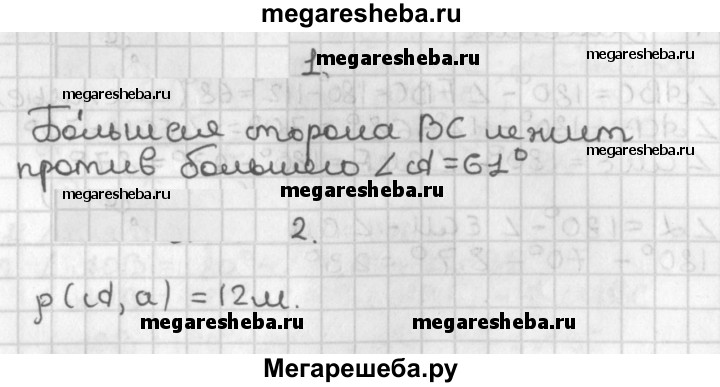 megaresheba.ru
1.
megaresheba.ru
megaresheba.ru
megaresheba.ru
Бо́льшая сторона BC лежит
megaresheba.ru
против большего ∠ A = 61°
megaresheba.ru
megaresheba.ru
2.
megaresheba.ru
ρ(A, a) = 12 м.
megaresheba.ru
megaresheba.ru
Мегарешеба.ру